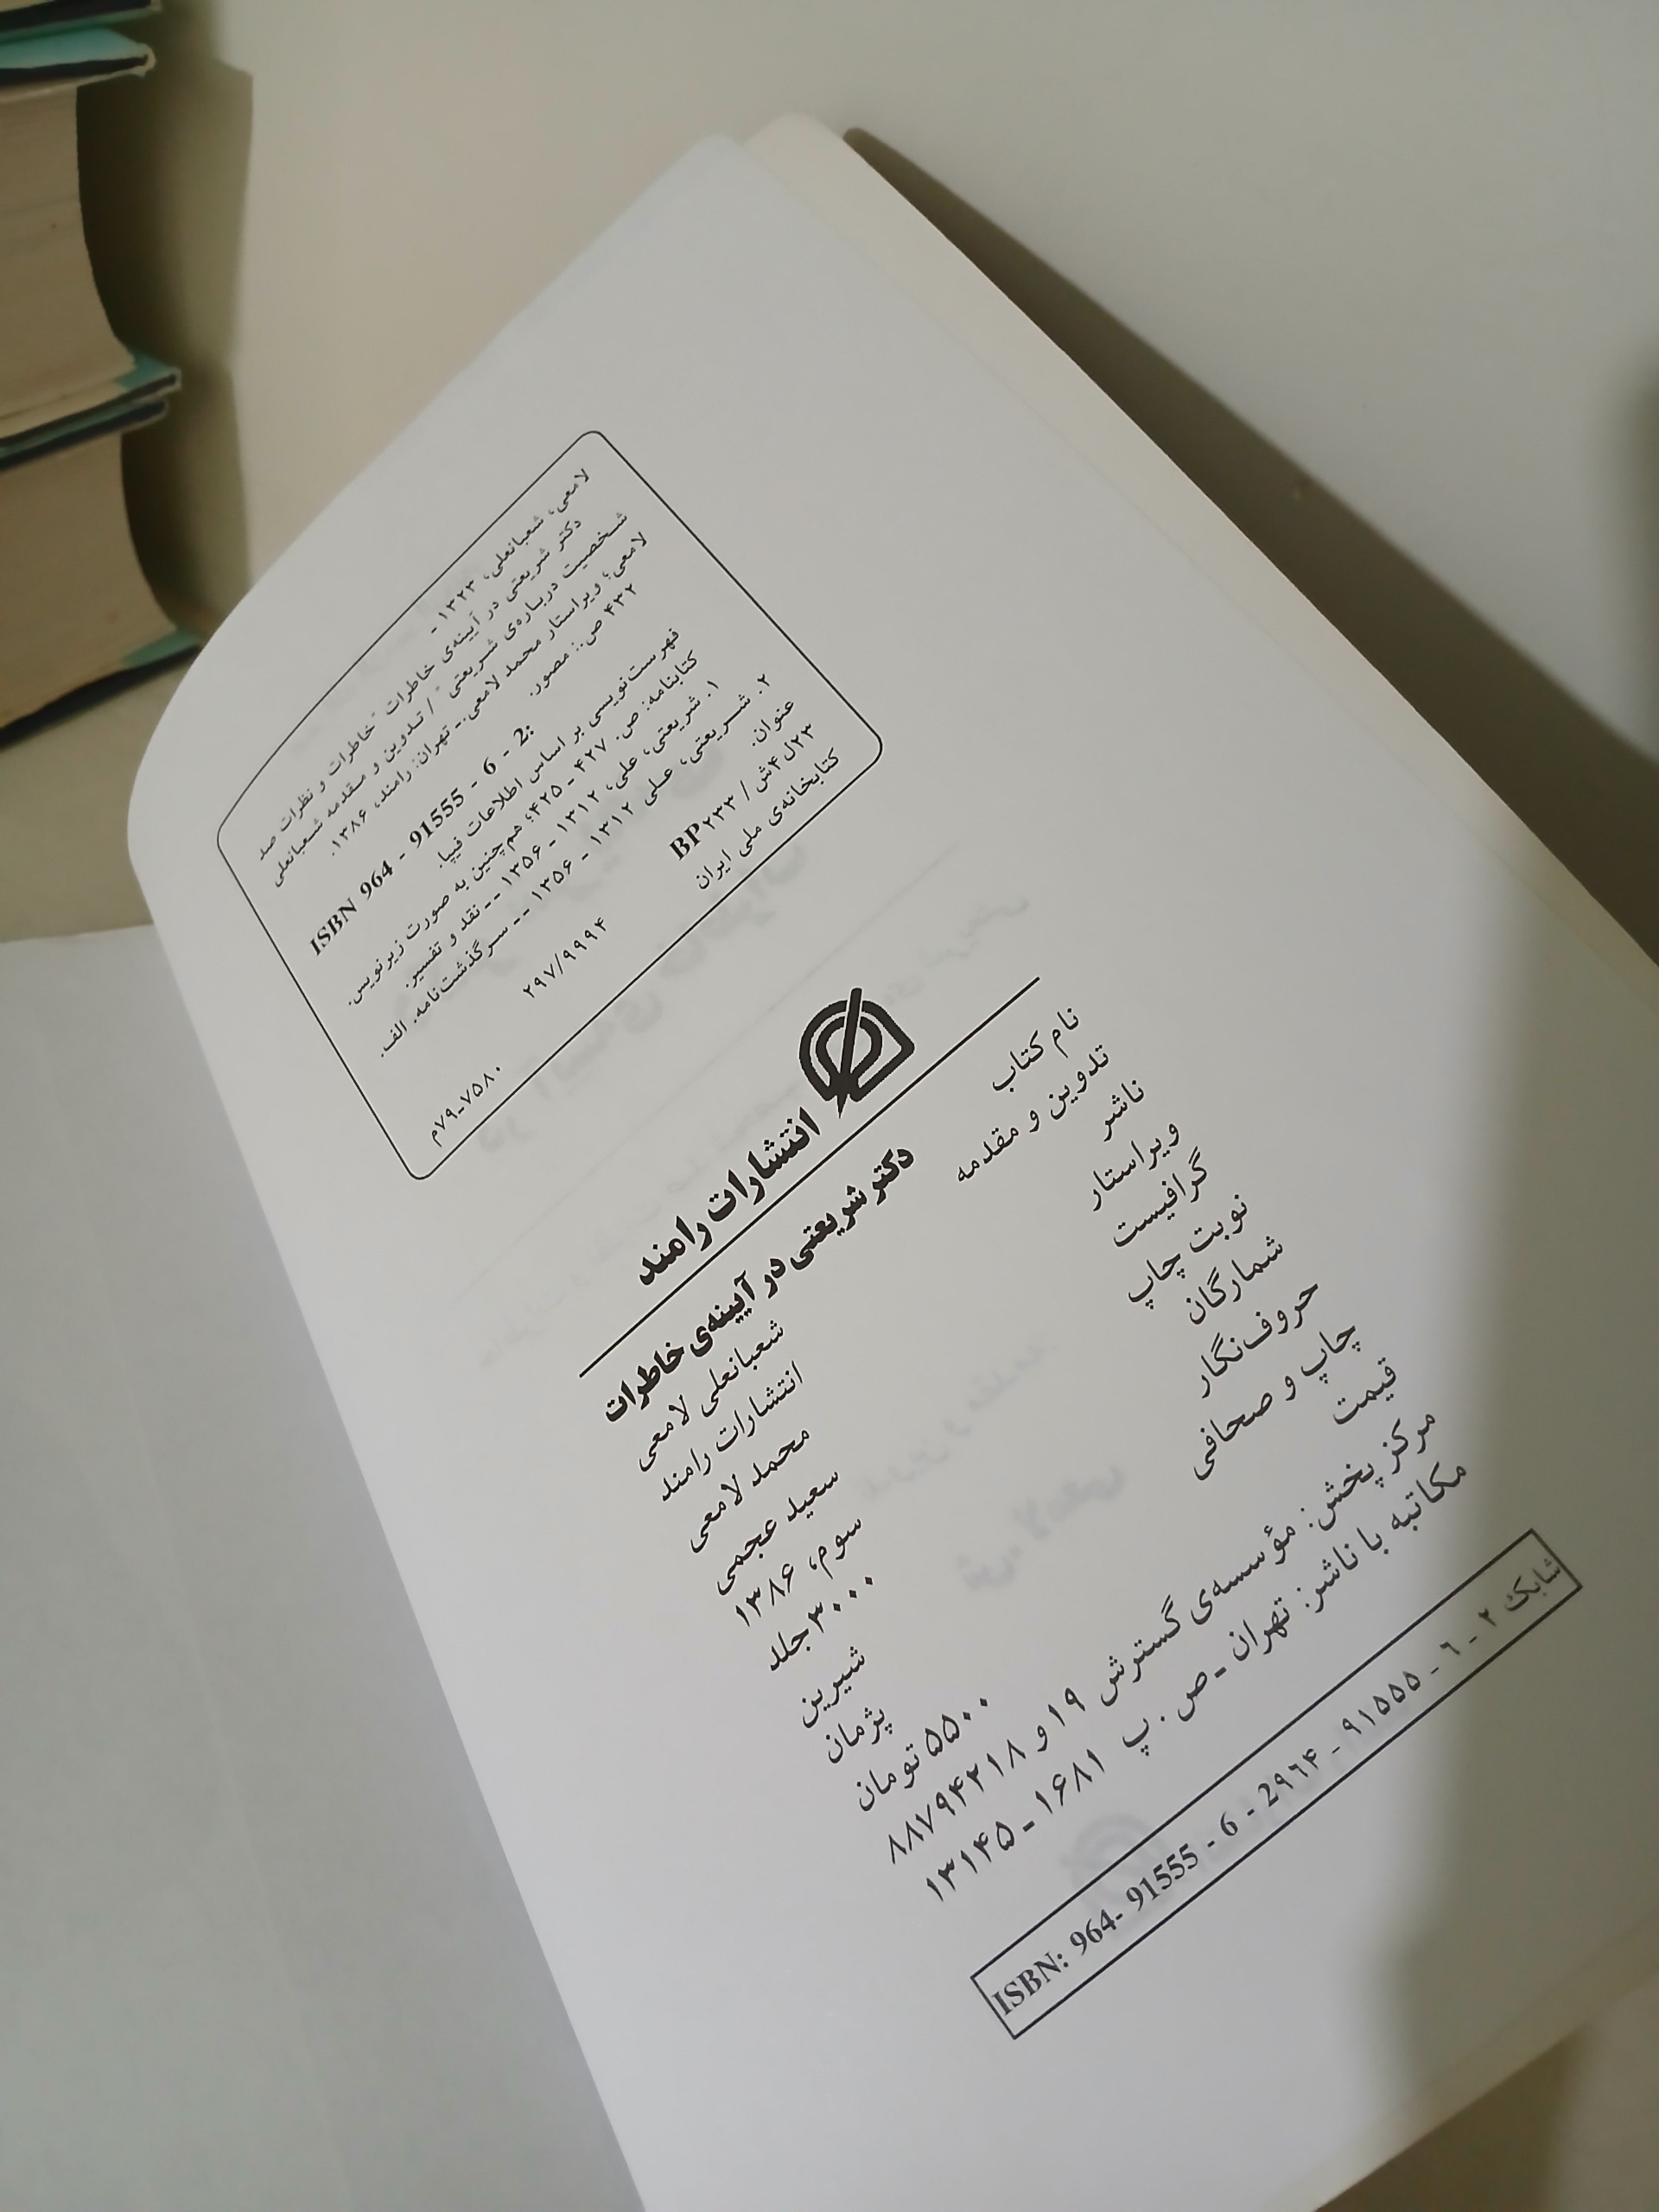 لامعی، شعبانعلی، ۱۳۲۳ -
دکتر شریعتی در آیینه‌ی خاطرات "خاطرات و نظرات صد
شخصیت درباره‌ی شریعتی" / تدوین و مقدمه شعبانعلی
لامعی؛ ویراستار محمد لامعی. - تهران: رامند، ۱۳۸۶.
۴۳۲ ص.: مصور.
ISBN 964 - 91555 - 6 - 2:
فهرست‌نویسی بر اساس اطلاعات فیپا.
کتابنامه: ص. ۴۲۷ - ۴۲۵؛ هم‌چنین به صورت زیرنویس.
۱. شریعتی، علی، ۱۳۱۲ - ۱۳۵۶ -- نقد و تفسیر.
۲. شریعتی، علی ۱۳۱۲ - ۱۳۵۶ -- سرگذشت‌نامه. الف.
عنوان.
۲۳ل۴ش / BP۲۳۳ ۲۹۷/۹۹۹۴
کتابخانه‌ی ملی ایران ۷۵۸۰-۷۹م
انتشارات رامند
نام کتاب دکتر شریعتی در آیینه‌ی خاطرات
تدوین و مقدمه شعبانعلی لامعی
ناشر انتشارات رامند
ویراستار محمد لامعی
گرافیست سعید عجمی
نوبت چاپ سوم، ۱۳۸۶
شمارگان ۳۰۰۰ جلد
حروف‌نگار شیرین
چاپ و صحافی پژمان
قیمت ۵۵۰۰ تومان
مرکز پخش: مؤسسه‌ی گسترش ۱۹ و ۸۸۷۹۴۲۱۸
مکاتبه با ناشر: تهران - ص. پ ۱۶۸۱ - ۱۳۱۴۵
شابک ۲ - ۶ - ۹۱۵۵۵ - ۹۶۴ ISBN: 964- 91555 - 6 - 2